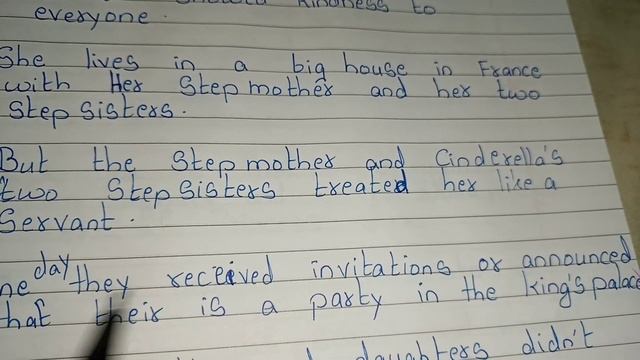 kindness to
everyone.
She lives in a big house in France
with Her Stepmother and her two
Step sisters.
But the Step mother and Cinderella's
two Step sisters treated her like a
Servant.
ne day they received invitations or announced
that their is a party in the king's palace
daughters didn't